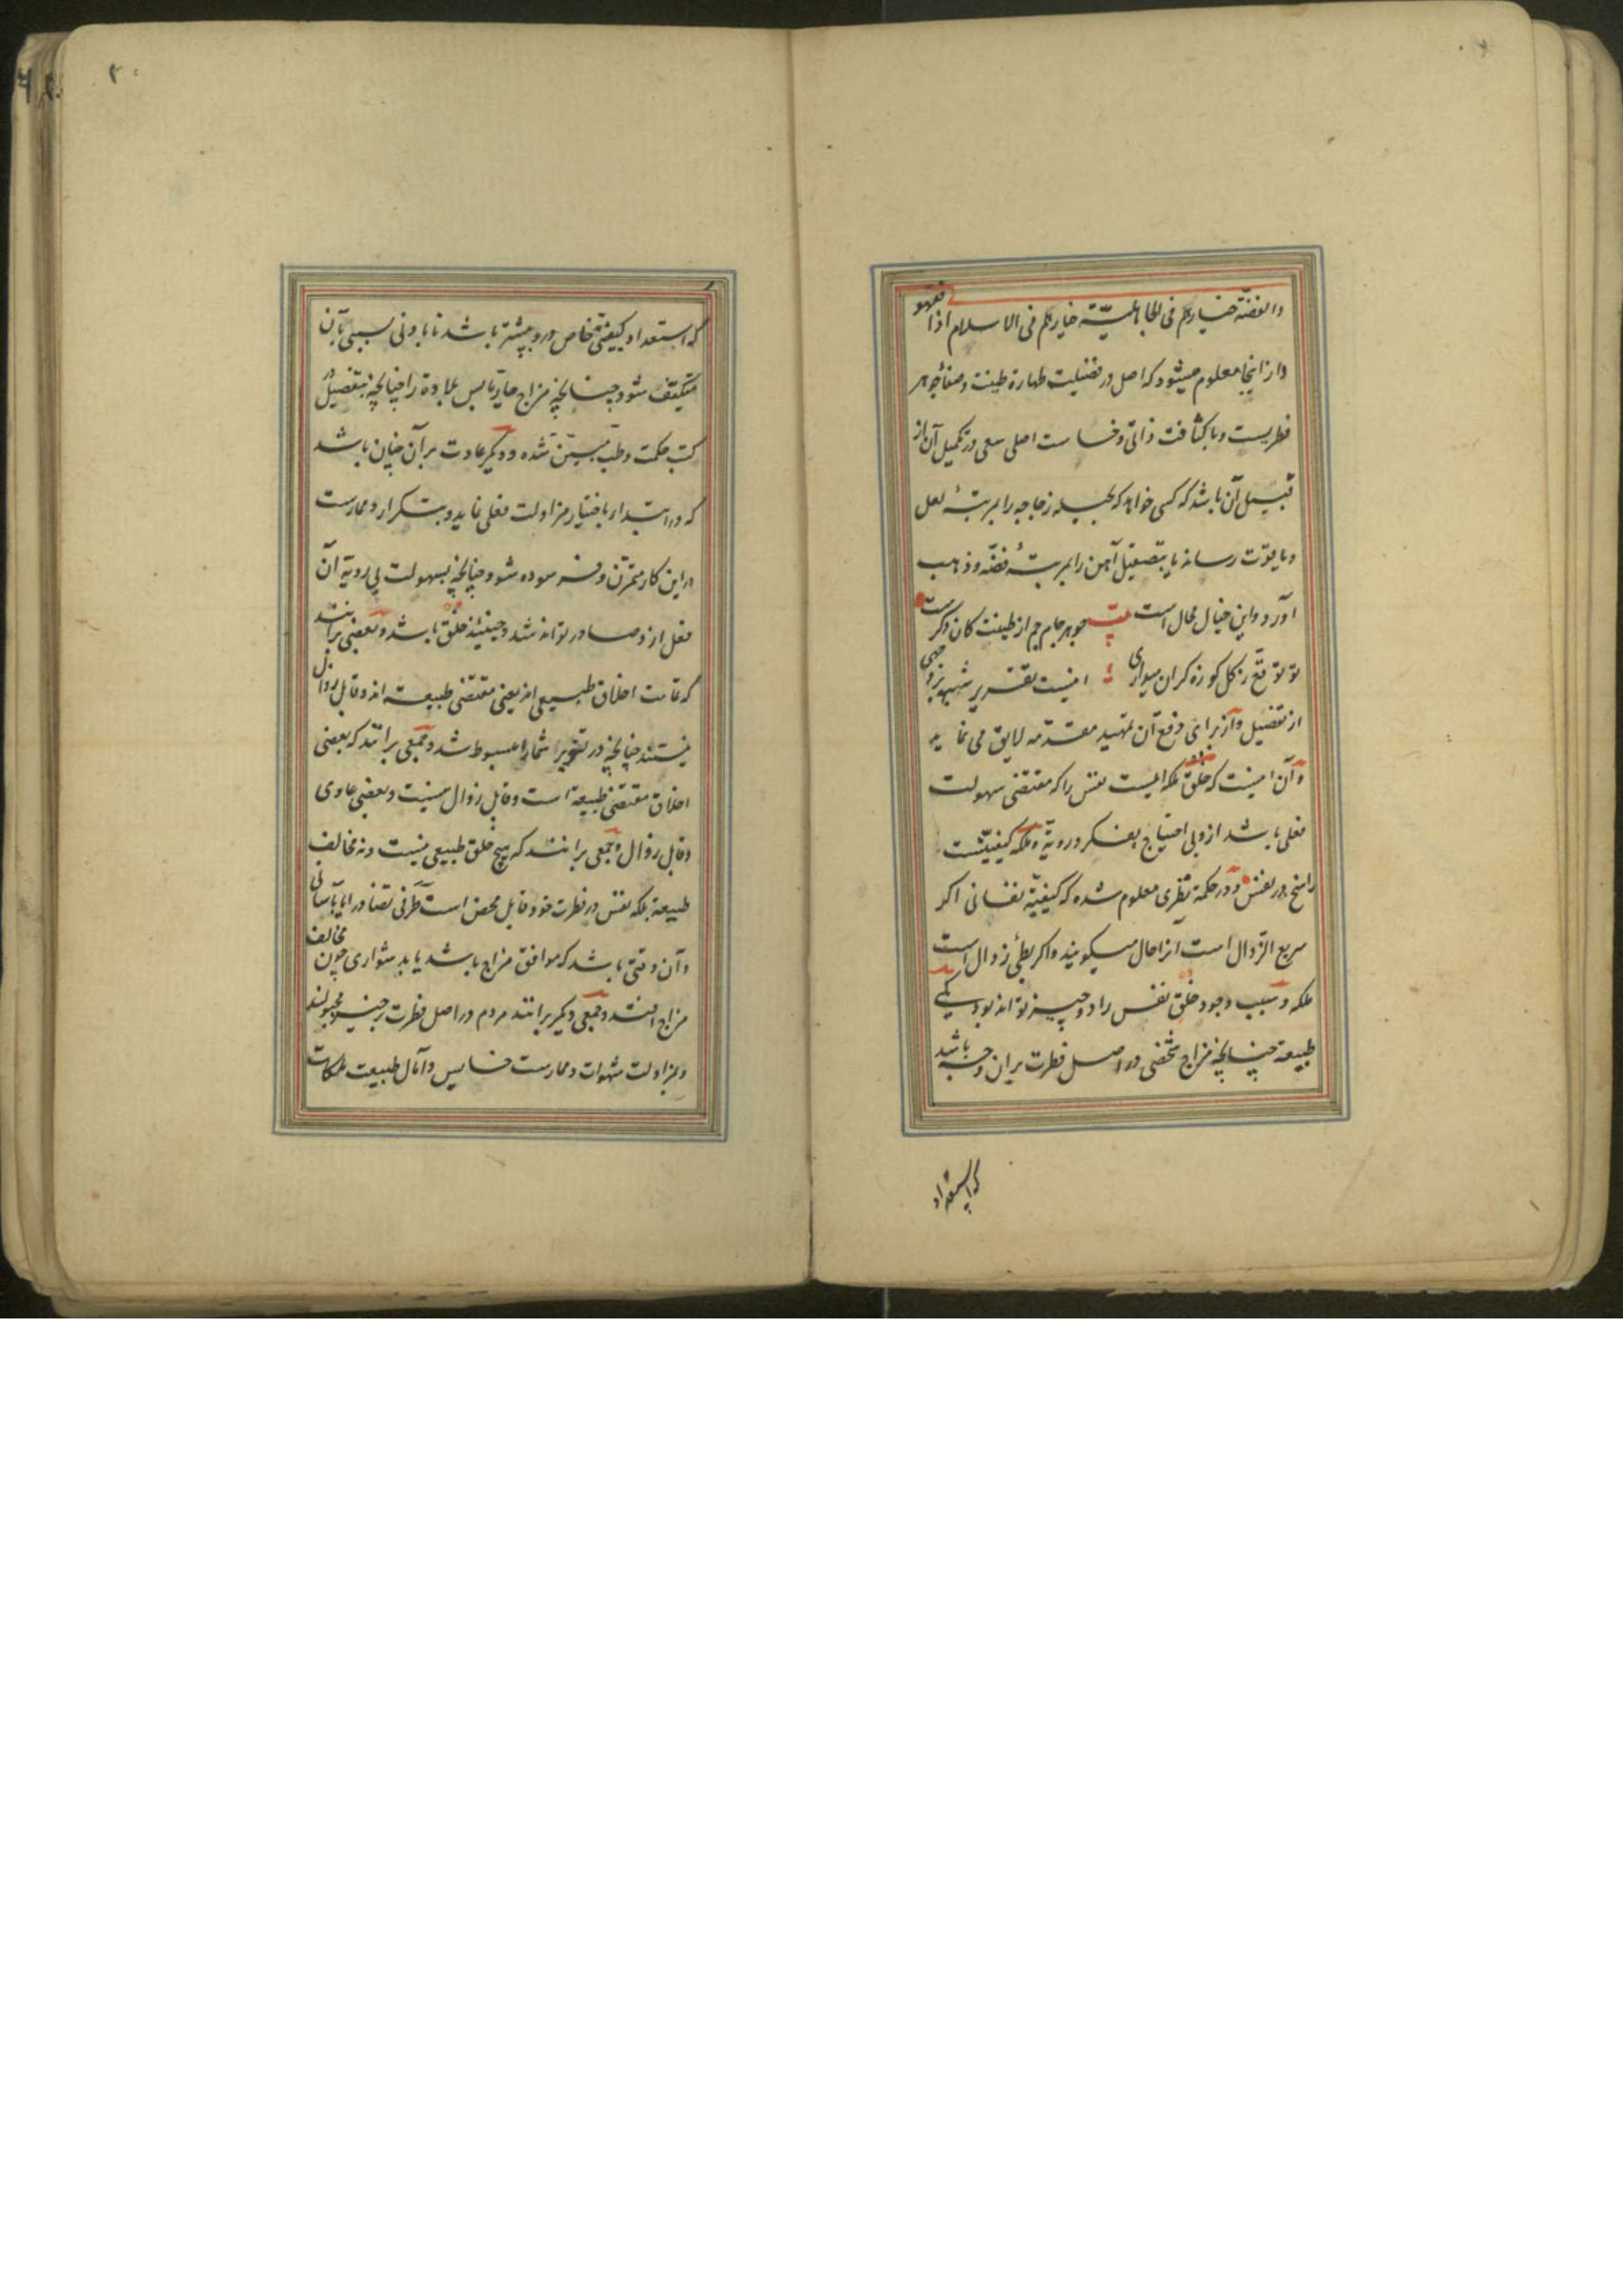 والفضّة خیارکم فی الجاهلیّة خیارکم فی الاسلام اذا فقهوا
و از اینجا معلوم میشود که اصل در فضیلت طهارة طینت و صفاء جوهر
فطریست و با کثافت ذاتی و خساست اصلی سعی در تکمیل آن از
قبیل آن باشد که کسی خواهد که بحیله زجاجه را بمرتبهٔ لعل
و یاقوت رساند یا بتصیقل آهن را بمرتبهٔ فضّه و ذهب
آورد و این خیال محال است بیت جوهر جام جم از طینت کان دگرست
تو توقّع ز گل کوزه گران میداری اینست تقریر شبهه بر وجهی
از تفضیل و از برای دفع آن تمهید مقدّمه لایق می نماید
و آن اینست که خلق ملکه ایست نفس را که مقتضی سهولت
فعلی باشد از و بی احتیاج بفکر و رویّة و ملکه کیفیّتیست
راسخ در نفس و در حکمة نظری معلوم شده که کیفیّة نفسانی اکر
سریع الزّوال است آنرا حال میکویند و اکر بطئ زوال است
ملکه و سبب وجود خلق نفس را دو چیز تواند بود یکی
طبیعة چنانچه مزاج شخصی در اصل فطرت بران وجه باشد
که استعداد
۳
که استعداد کیفیتی خاص درو بیشتر باشد تا بادنی سببی بآن
متکیّف شود چنانچه مزاج حار یابس را چنانچه بتفصیل در
کتب حکمت و طب مبیّن شده و دیکر عادت بر آن چنان باشد
که در ابتداء باختیار مزاولت فعلی نماید و بتکرار و ممارست
در این کار متمرّن و فرسوده شود چنانچه بسهولت بی رویة آن
فعل ازو صادر تواند شد و حینئذ خلق باشد و بعضی برانند
که تمامت اخلاق طبیعی اند یعنی مقتضی طبیعت اند و قابل زوال
نیستند چنانچه در شما را مبسوط شد و جمعی برانند که بعضی
اخلاق مقتضی طبیعة است و قابل زوال نیست و بعضی عادی
و قابل زوال و جمعی برانند که هیچ خلق طبیعی نیست و نه مخالف
طبیعة بلکه نفس در فطرت خود قابل محض است طرفی تضاد را یا بآسانی
و آن وقتی باشد که موافق مزاج باشد یا بدشواری چون مخالف
مزاج افتد و جمعی دیکر برانند مردم در اصل فطرت بر خیر مجبولند
و بمزاولت شهوات و ممارست خسایس و آمال طبیعت ملکات